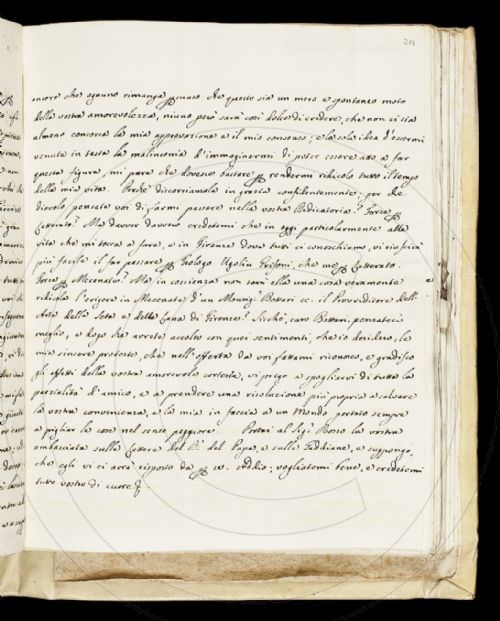 214
ancora che ognuno rimanga persuaso che questo sia un mero e spontaneo moto
della vostra amorevolezza, niuno però sarà così dolce di credere, che non ci sia
almeno concorsa la mia approvazione e il mio consenso; e la sola idea d'essermi
venuta in testa la malinconia d'immaginarmi di poter essere atto a far
questa figura, mi pare che dovesse bastare per rendermi ridicolo tutto il tempo
della mia vita. Perché discorriamola in grazia confidentemente: per che
diavolo pensate voi di farmi passare nella vostra Dedicatoria? Forse per
Letterato? Ma davver davvero credetemi che in oggi particolarmente alla
vita che mi tocca a fare, e in Firenze dove tutti ci conoschiamo, vi riuscirà
più facile il far passare per Teologo Ugolin Grifoni, che me per Letterato.
Forse per Mecenate? Ma in coscienza non sarà ella una cosa veramente
ridicola l'erigere in Mecenate d'un Monsig. Bottari &c. il Provveditore dell'
Arte della Seta e della Lana di Firenze? Sicché, caro Bottari, pensateci
meglio, e dopo che avrete accolto con quei sentimenti, che io desidero, le
mie sincere proteste, che nell'offerta da voi fattami riconosco, e gradisco
gli effetti della vostra amorevole cortesia, vi prego a spogliarvi di tutta la
parzialità d'amico, e a prendere una risoluzione più propria a salvare
la vostra convenienza, e la mia in faccia a un Mondo portato sempre
a pigliar le cose nel senso peggiore. Portai al Sig. Rosso la vostra
ambasciata sulle Lettere del P. del Papa, e sulle Feddiane, e suppongo,
che egli vi ci avrà risposto da per se. Addio; vogliatemi bene, e credetemi
tutto vostro di cuore